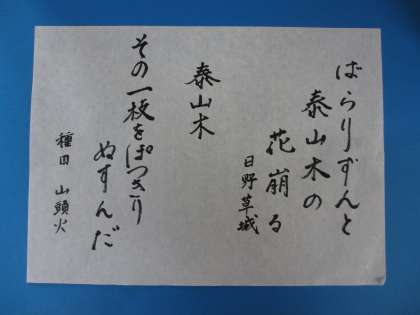 ばらりずんと
泰山木の
花崩る
日野草城
泰山木
その一枝をぽつきり
ぬすんだ
種田 山頭火